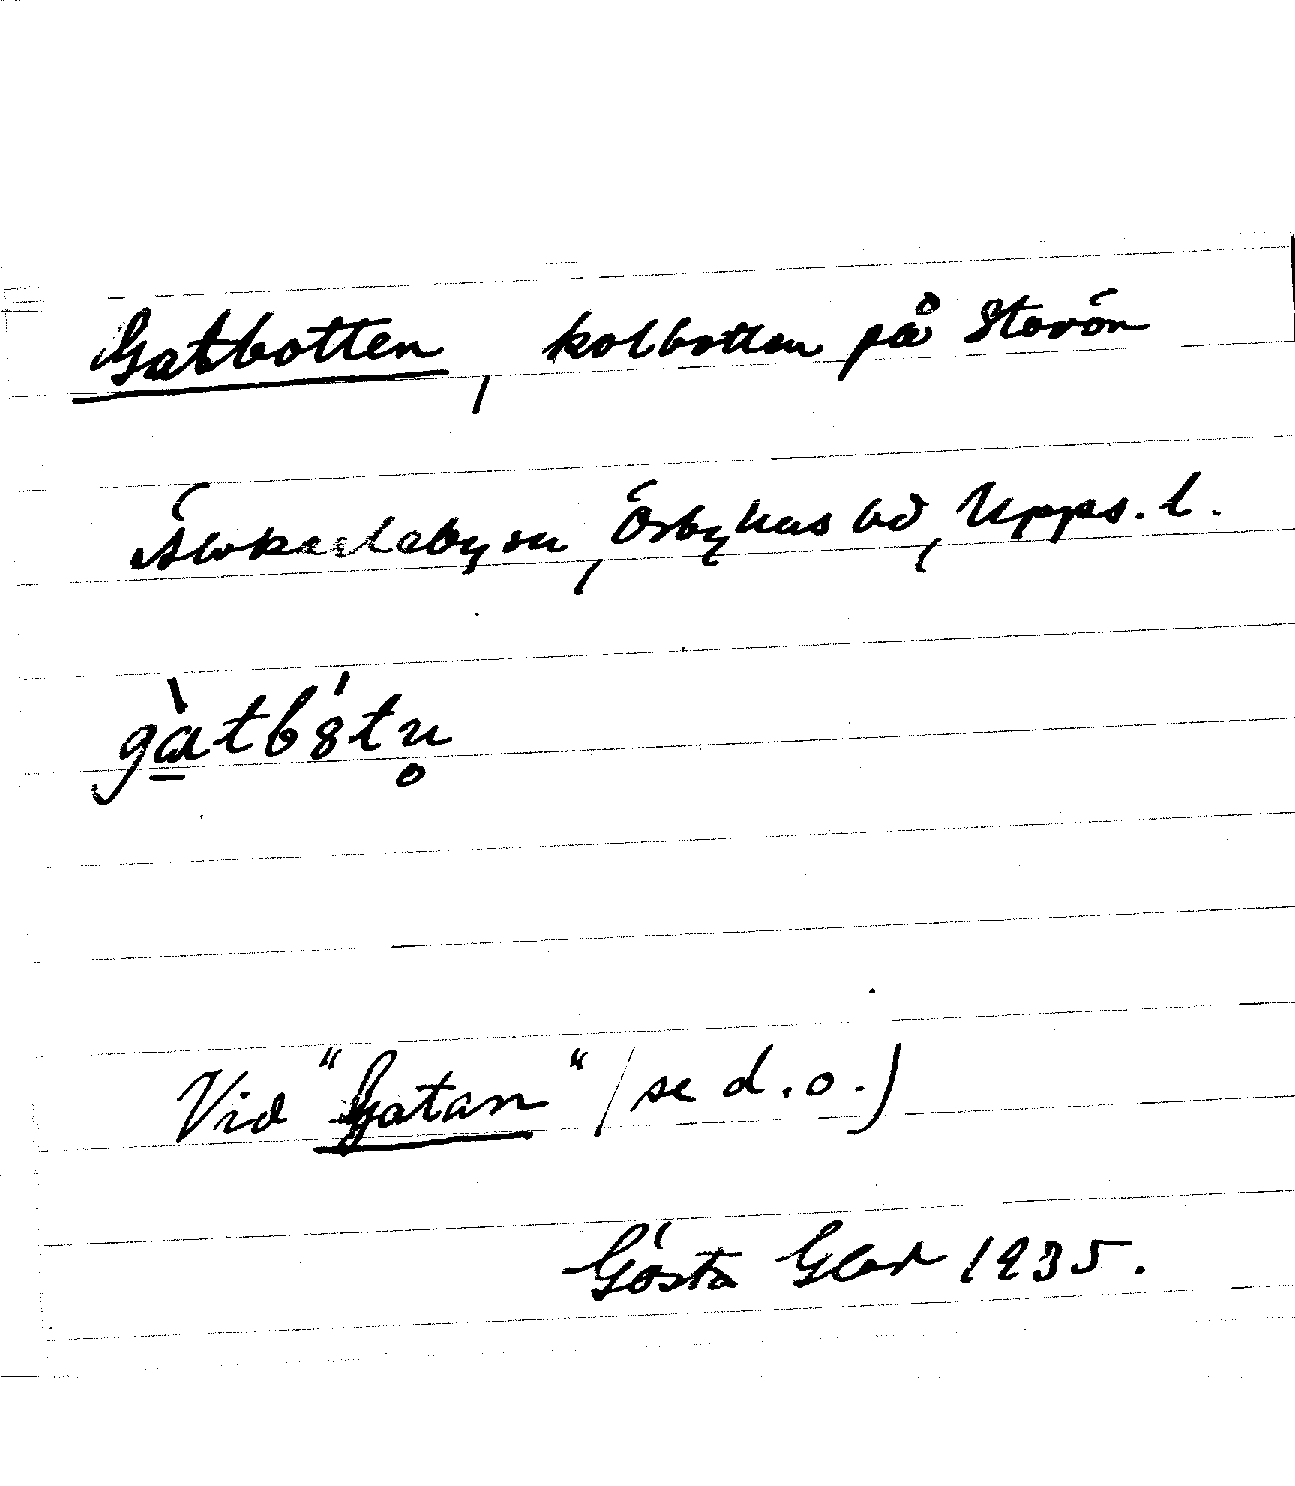 Gatbotten, kolbotten på Storön
Älvkarleby sn, Örbyhus hd, Upps. l.
gàtb8́tn̥
Vid "Gatan" (se d.o.)
Gösta 1935.